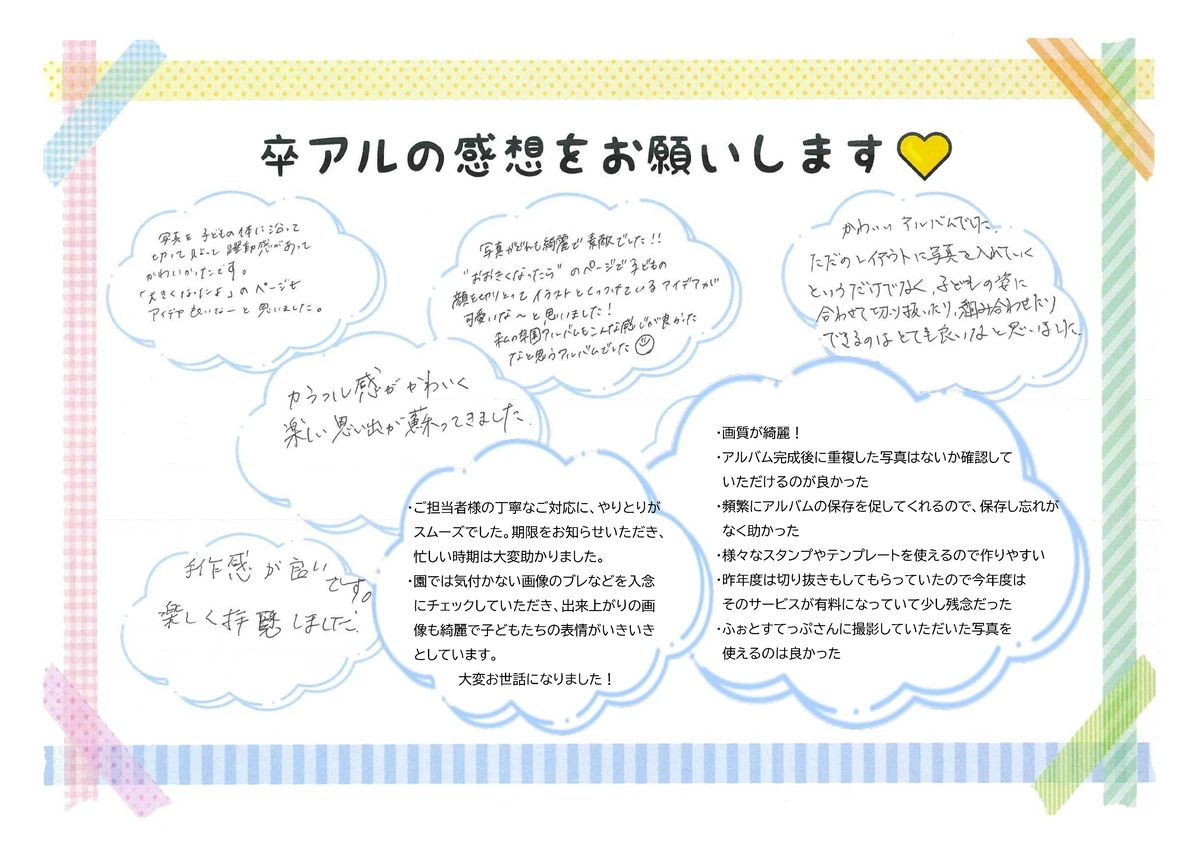 卒アルの感想をお願いします
写真を子どもの体に沿って
切って貼って躍動感があって
かわいかったです。
「大きくなったよ」のページも
アイデア良いなーと思いました。
写真がどれも綺麗で素敵でした!!
"おおきくなったら"のページで子どもの
顔を切りとってイラストとくっつけているアイデアが
可愛いな〜と思いました!
私の卒園アルバムもこんな感じが良かった
なと思うアルバムでした
かわいいアルバムでした。
ただのレイアウトに写真を入れていく
というだけでなく、子どもの姿に
合わせて切り抜いたり、組み合わせたり
できるのはとても良いなと思いました。
カラフル感がかわいく
楽しい思い出が蘇ってきました。
手作感が良い
です。
楽しく拝聴しました。
・ご担当者様の丁寧なご対応に、やりとりが
スムーズでした。期限をお知らせいただき、
忙しい時期は大変助かりました。
・園では気付かない画像のブレなどを入念
にチェックしていただき、出来上がりの画
像も綺麗で子どもたちの表情がいきいき
としています。
大変お世話になりました!
・画質が綺麗!
・アルバム完成後に重複した写真はないか確認して
いただけるのが良かった
・頻繁にアルバムの保存を促してくれるので、保存し忘れが
なく助かった
・様々なスタンプやテンプレートを使えるので作りやすい
・昨年度は切り抜きもしてもらっていたので今年度は
そのサービスが有料になっていて少し残念だった
・ふぉとすてっぷさんに撮影していただいた写真を
使えるのは良かった